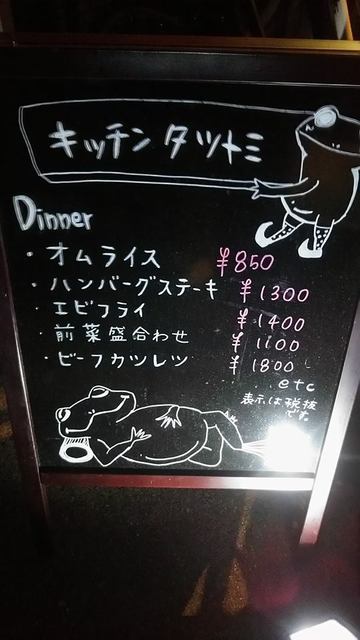 キッチン タツトミ
Dinner
・オムライス ¥850
・ハンバーグステーキ ¥1300
・エビフライ ¥1400
・前菜盛合わせ ¥1100
・ビーフカツレツ ¥1800
...etc
表示は税抜
です。